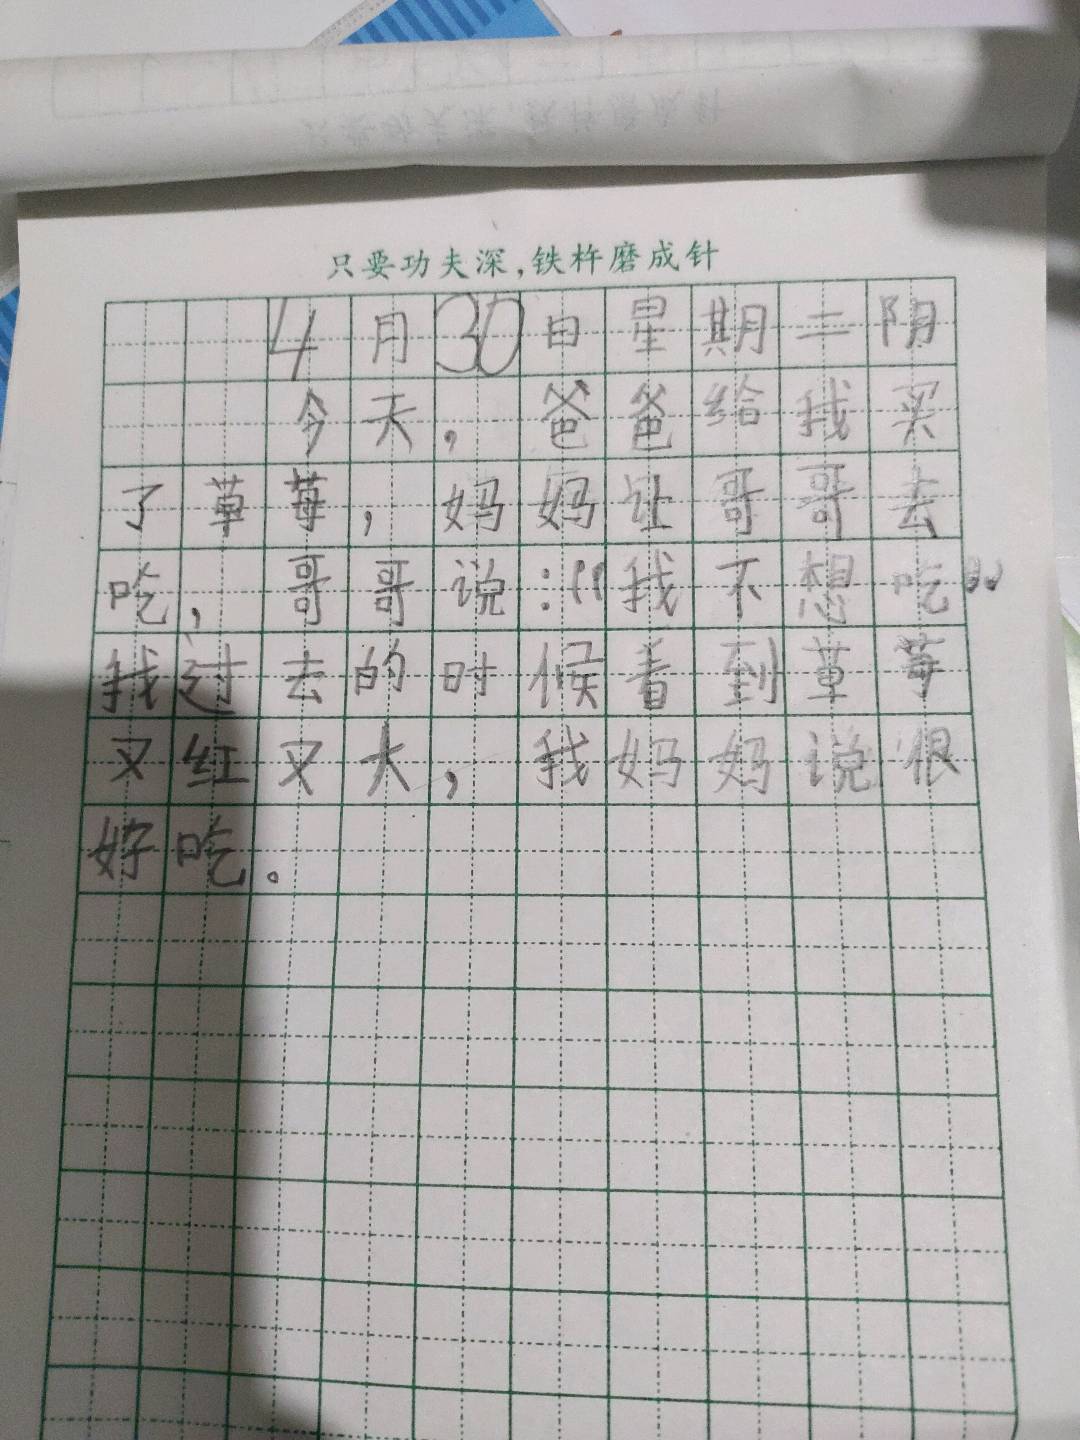 只要功夫深，铁杵磨成针
4月30日星期二阴
今天，爸爸给我买
了草莓，妈妈让哥哥去
吃，哥哥说：“我不想吃”
我过去的时候看到草莓
又红又大，我妈妈说很
好吃。